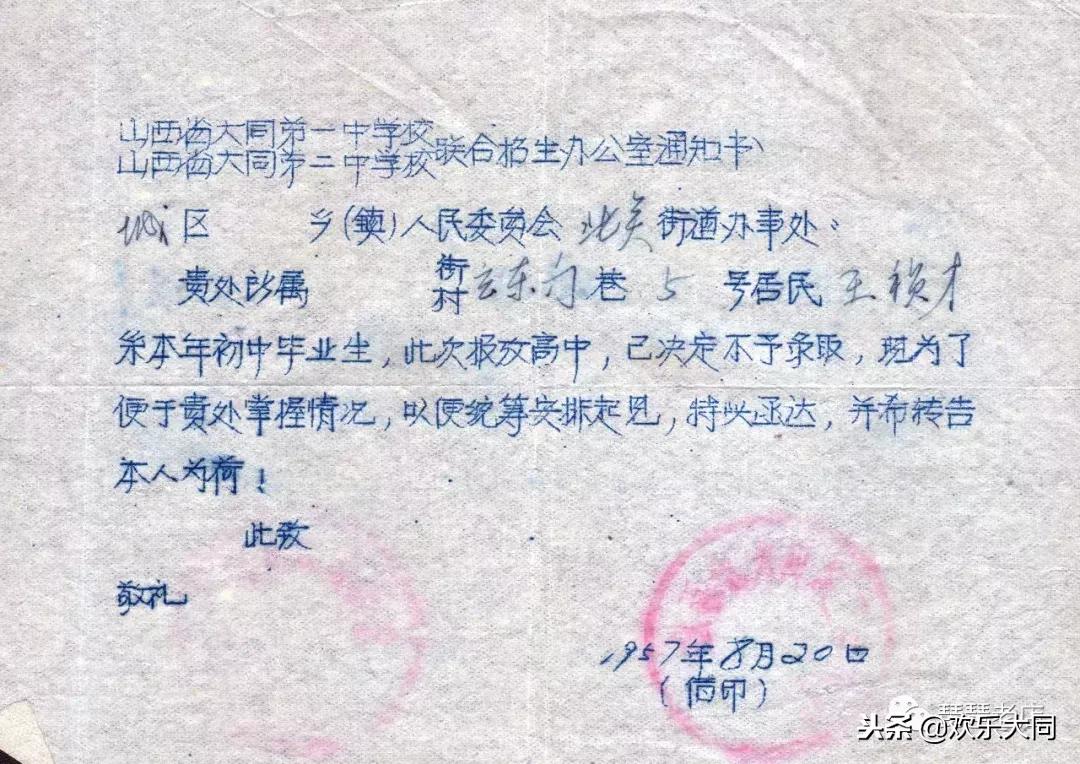 山西省大同第一中学校
山西省大同第二中学校联合招生办公室通知书
城区 乡(镇)人民委员会北关街道办事处:
贵处所属 街村云东门巷 5 号居民王祯才
系本年初中毕业生,此次报考高中,已决定不予录取,现为了
便于贵处掌握情况,以便统筹安排起见,特此函达,并希转告
本人为荷!
此致
敬礼
1957年8月20日
(借印)
琴琴老店
头条@欢乐大同